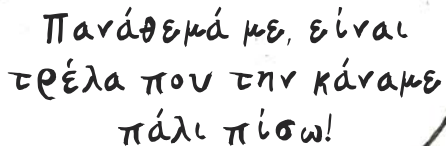 Πανάθεμά με, είναι
τρέλα που την κάναμε
πάλι πίσω!